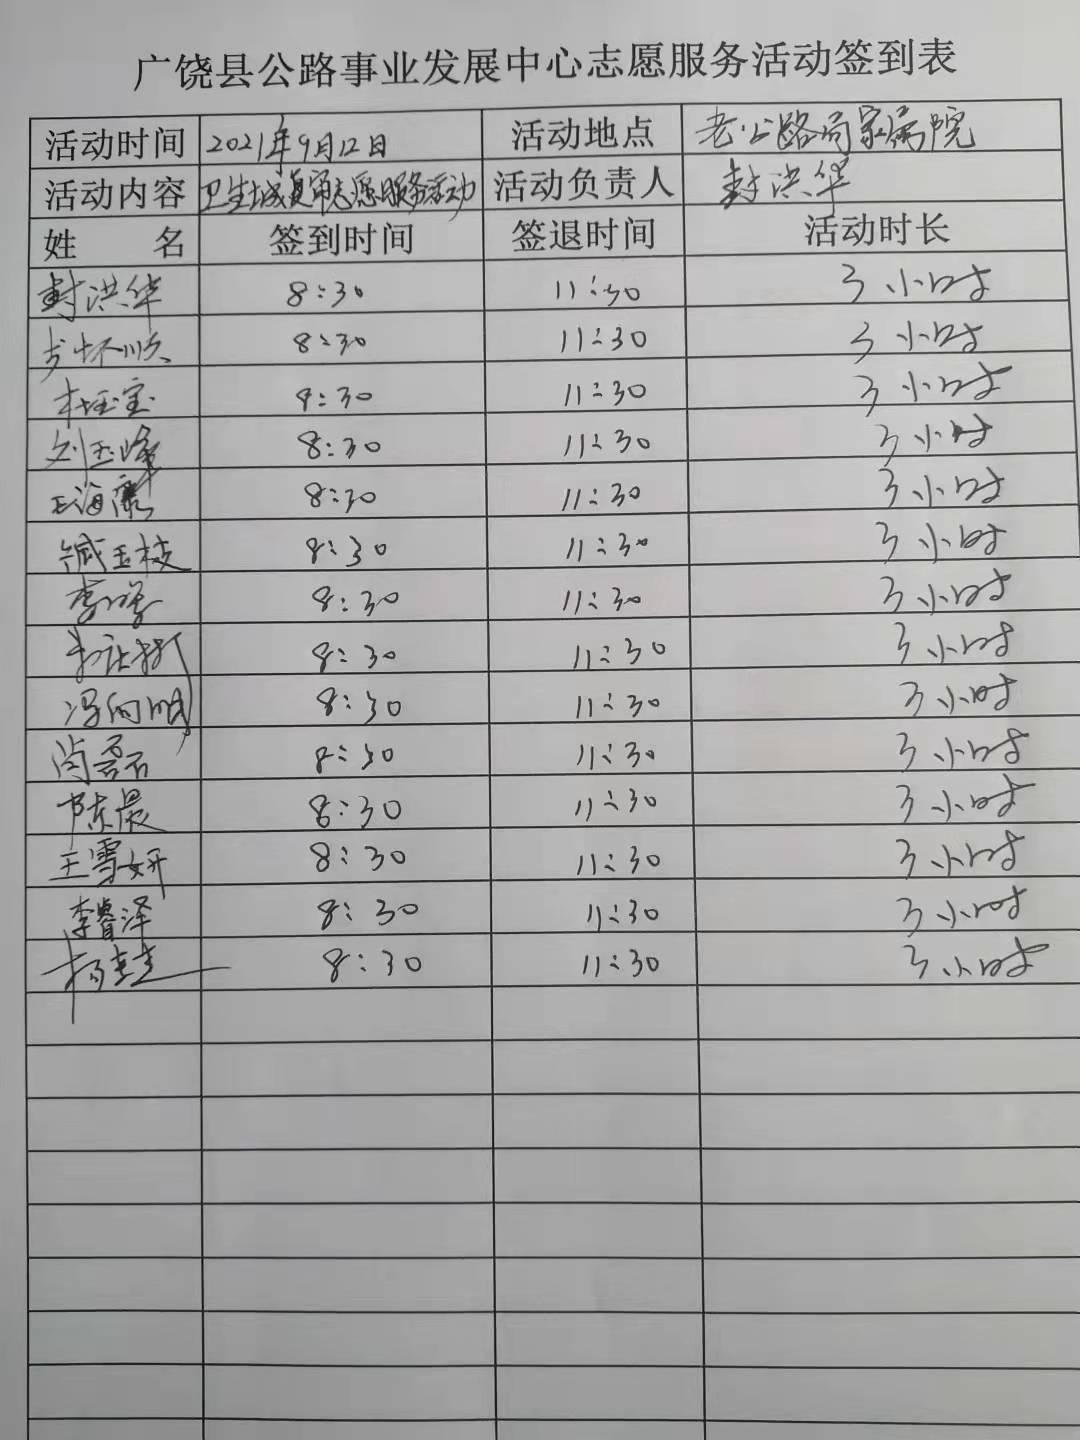 广饶县公路事业发展中心志愿服务活动签到表
活动时间 2021年9月12日 活动地点 老公路局家属院
活动内容 卫生城复审志愿服务活动 活动负责人 封洪华
姓 名 签到时间 签退时间 活动时长
封洪华 8:30 11:30 3小时
步怀顺 8:30 11:30 3小时
8:30 11:30 3小时
刘玉峰 8:30 11:30 3小时
王海燕 8:30 11:30 3小时
臧玉枝 8:30 11:30 3小时
8:30 11:30 3小时
8:30 11:30 3小时
冯向明 8:30 11:30 3小时
尚磊 8:30 11:30 3小时
陈晨 8:30 11:30 3小时
王雪妍 8:30 11:30 3小时
李睿泽 8:30 11:30 3小时
8:30 11:30 3小时